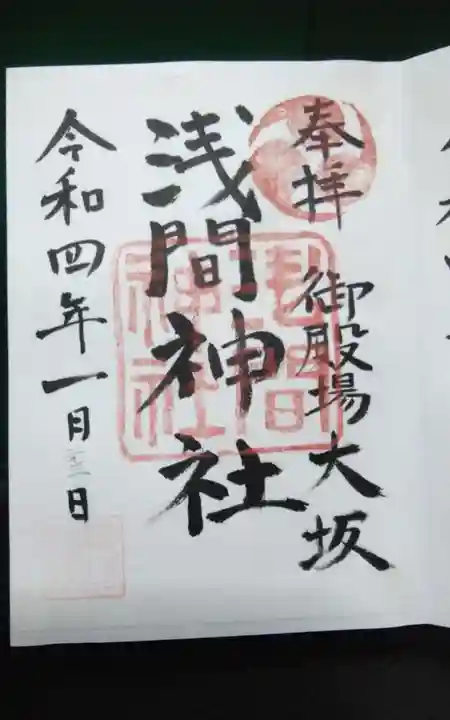 奉拝
御殿場大坂
浅間神社
浅間
神社
令和四年一月三日